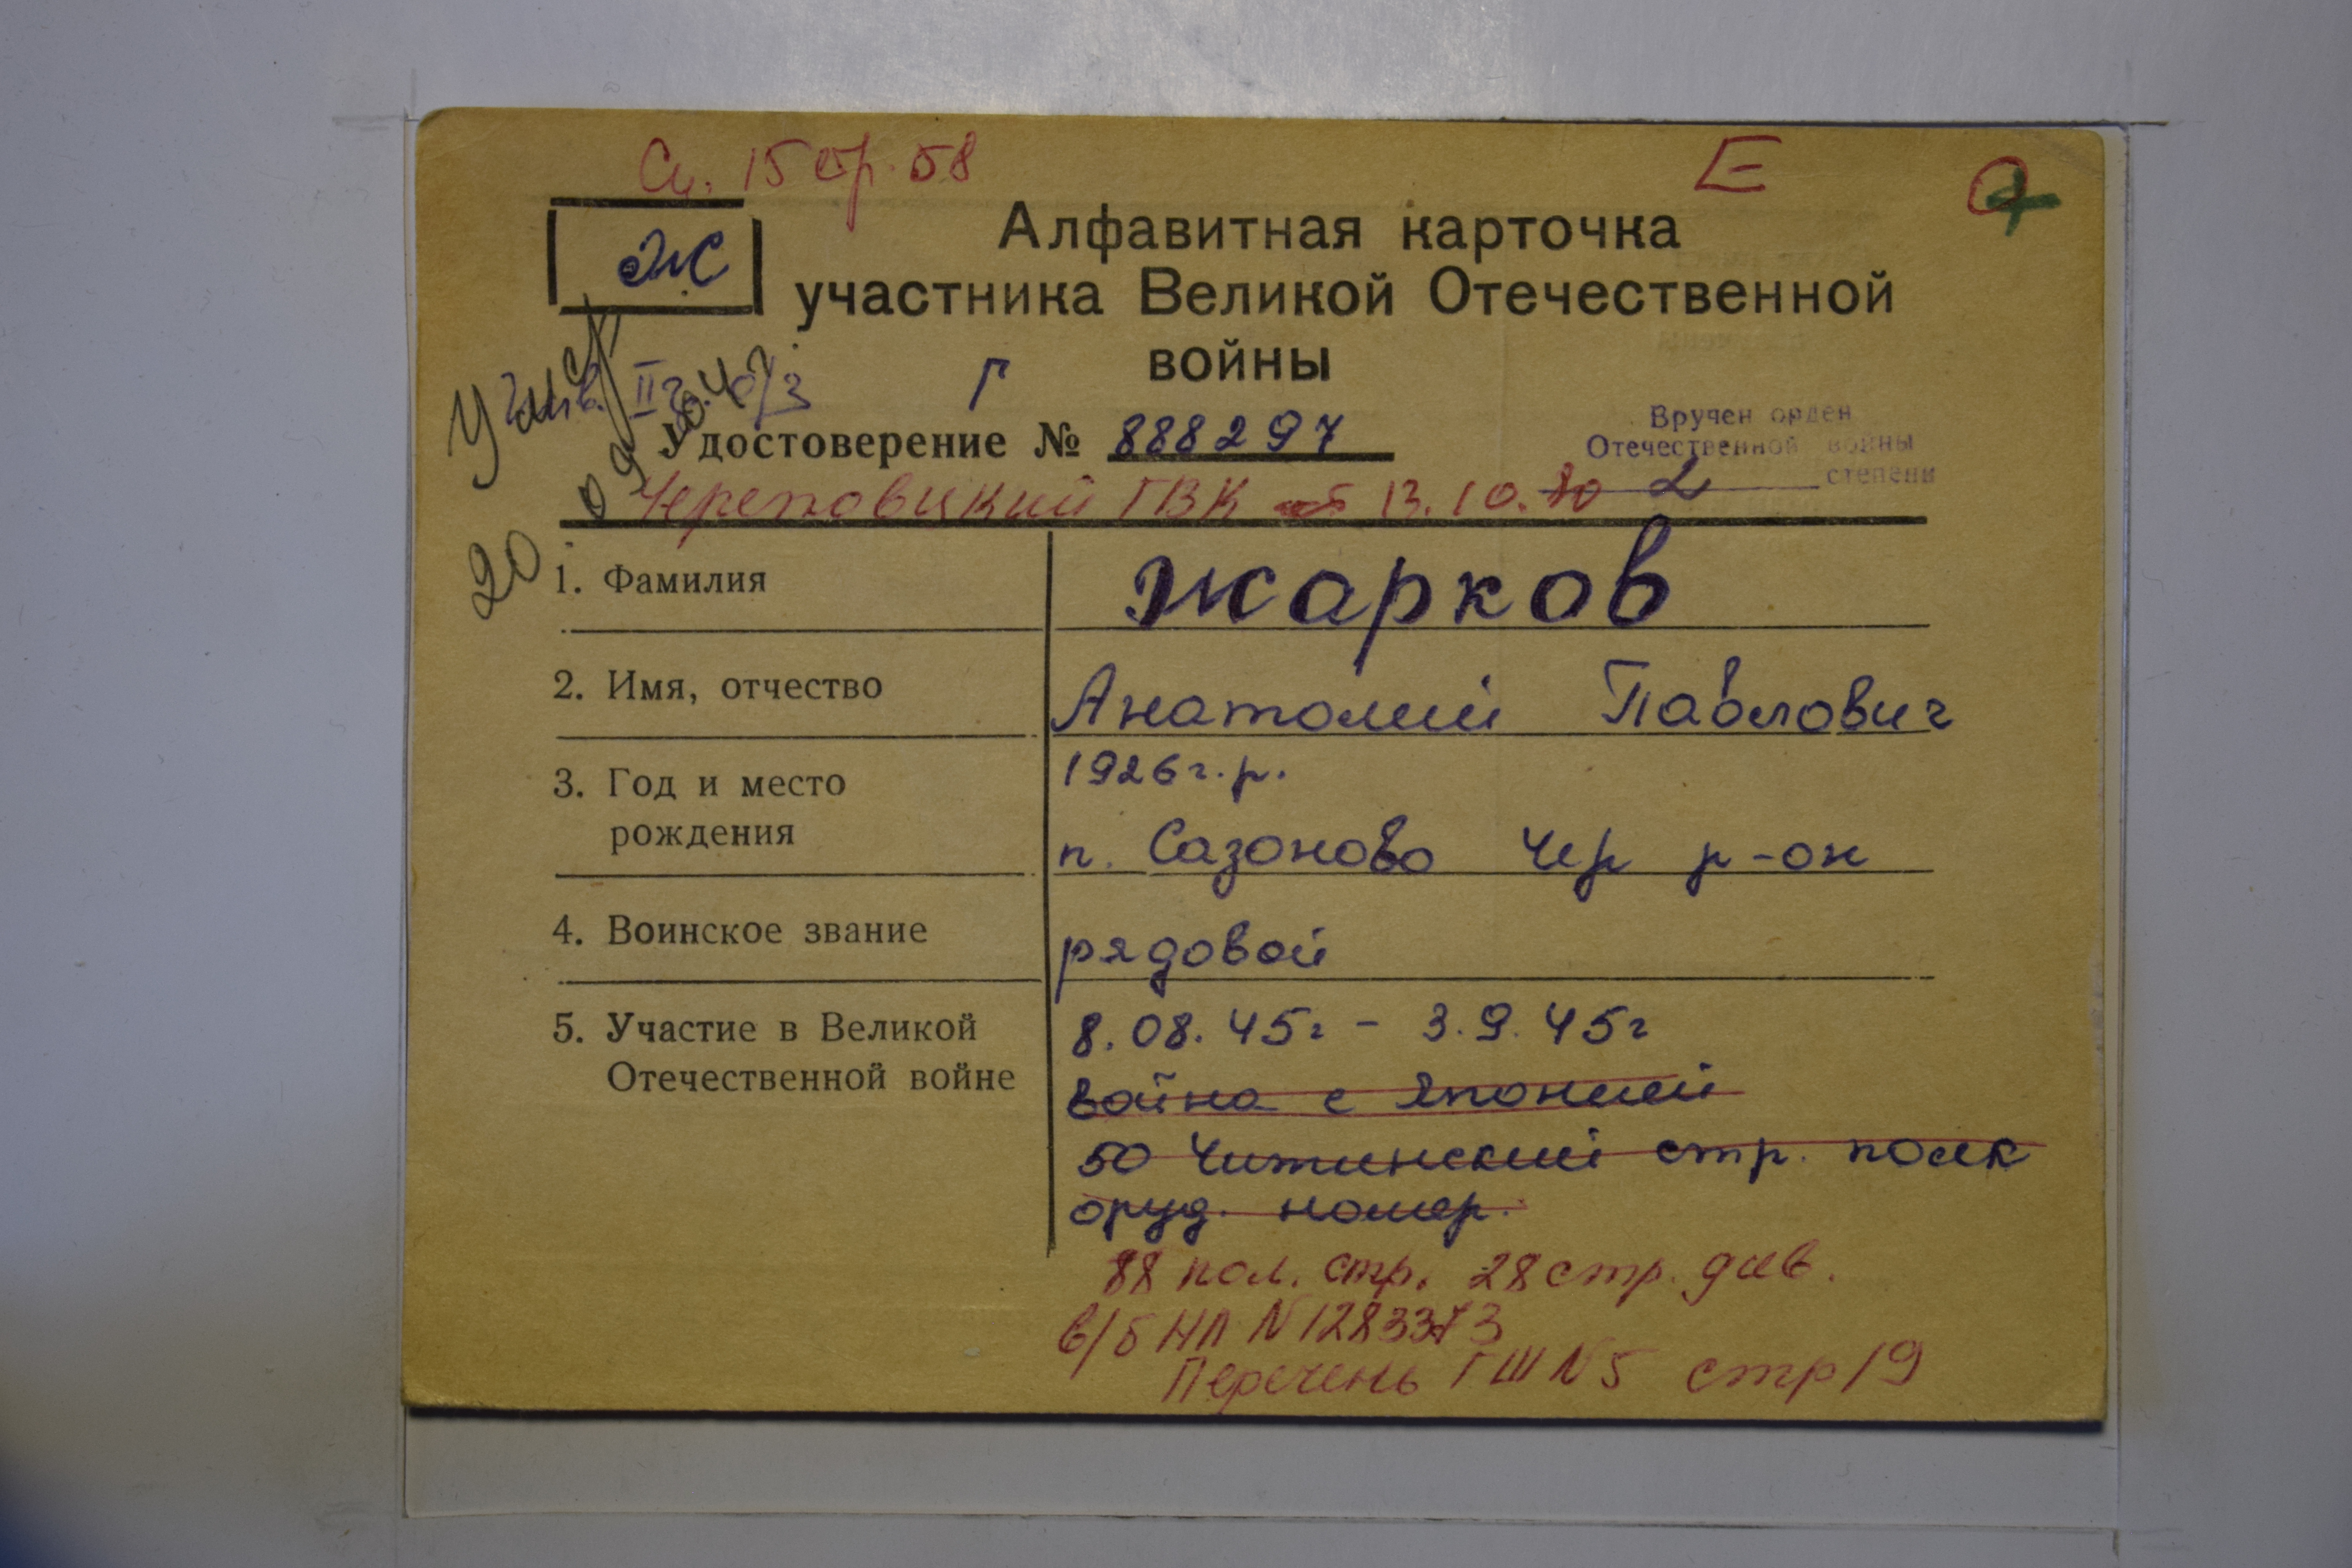 15 58
Е
Ж
Алфавитная карточка
участника Великой Отечественной
войны
Г
Вручен орден
Отечественной войны
2 степени
Удостоверение № 888297
Череповецкий ГВК от 13.10.80
20
1. Фамилия Жарков
2. Имя, отчество Анатолий Павлович
3. Год и место 1926 г.р.
рождения п. Сазоново Чер р-он
4. Воинское звание рядовой
5. Участие в Великой 8.08.45г - 3.9.45г
Отечественной войне война с Японией
50 Читинский стр. полк
оруд. номер.
88 пол. стр. 28 стр. див.
в/б НЛ N 1283373
Перечень ГШ N 5 стр 19